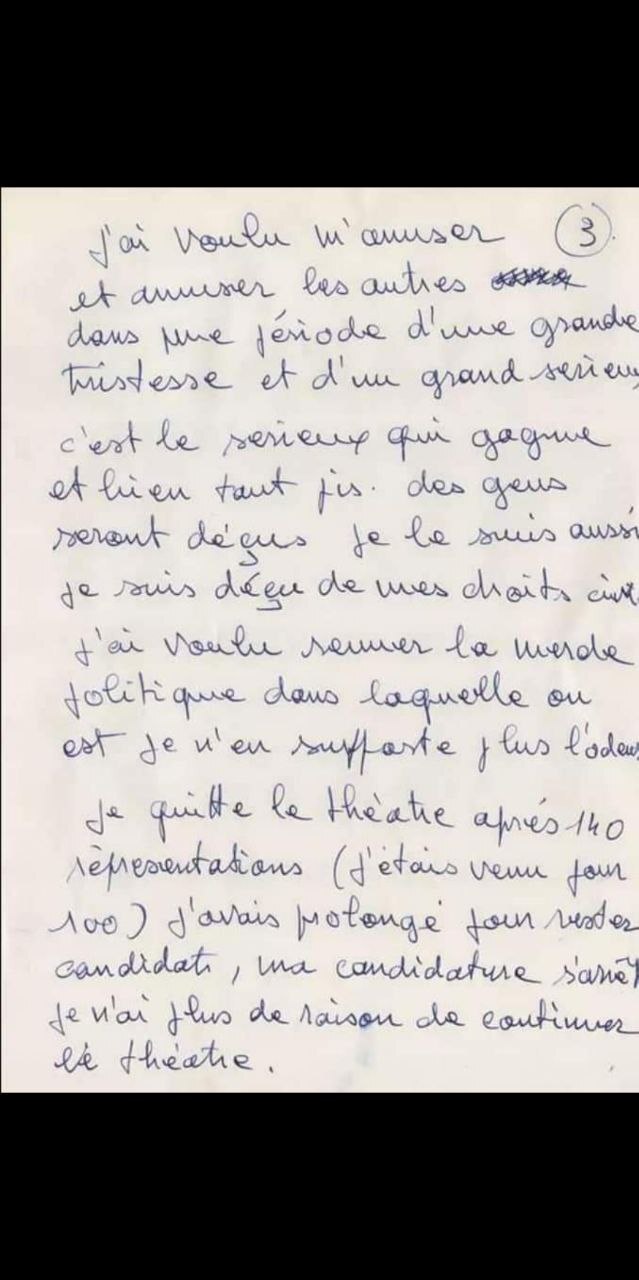 j'ai voulu m'amuser (3)
et amuser les autres
dans une période d'une grande
tristesse et d'un grand serieux
c'est le serieux qui gagne
et bien tant pis. des gens
seront déçus je le suis aussi
je suis déçu de mes droits
j'ai voulu remuer la merde
politique dans laquelle on
est je n'en supporte plus l'odeur
je quitte le théatre aprés 140
réprésentations (j'étais venu pour
100) j'avais prolongé pour rester
candidat, ma candidature s'arrêt
je n'ai plus de raison de continuer
le théatre.